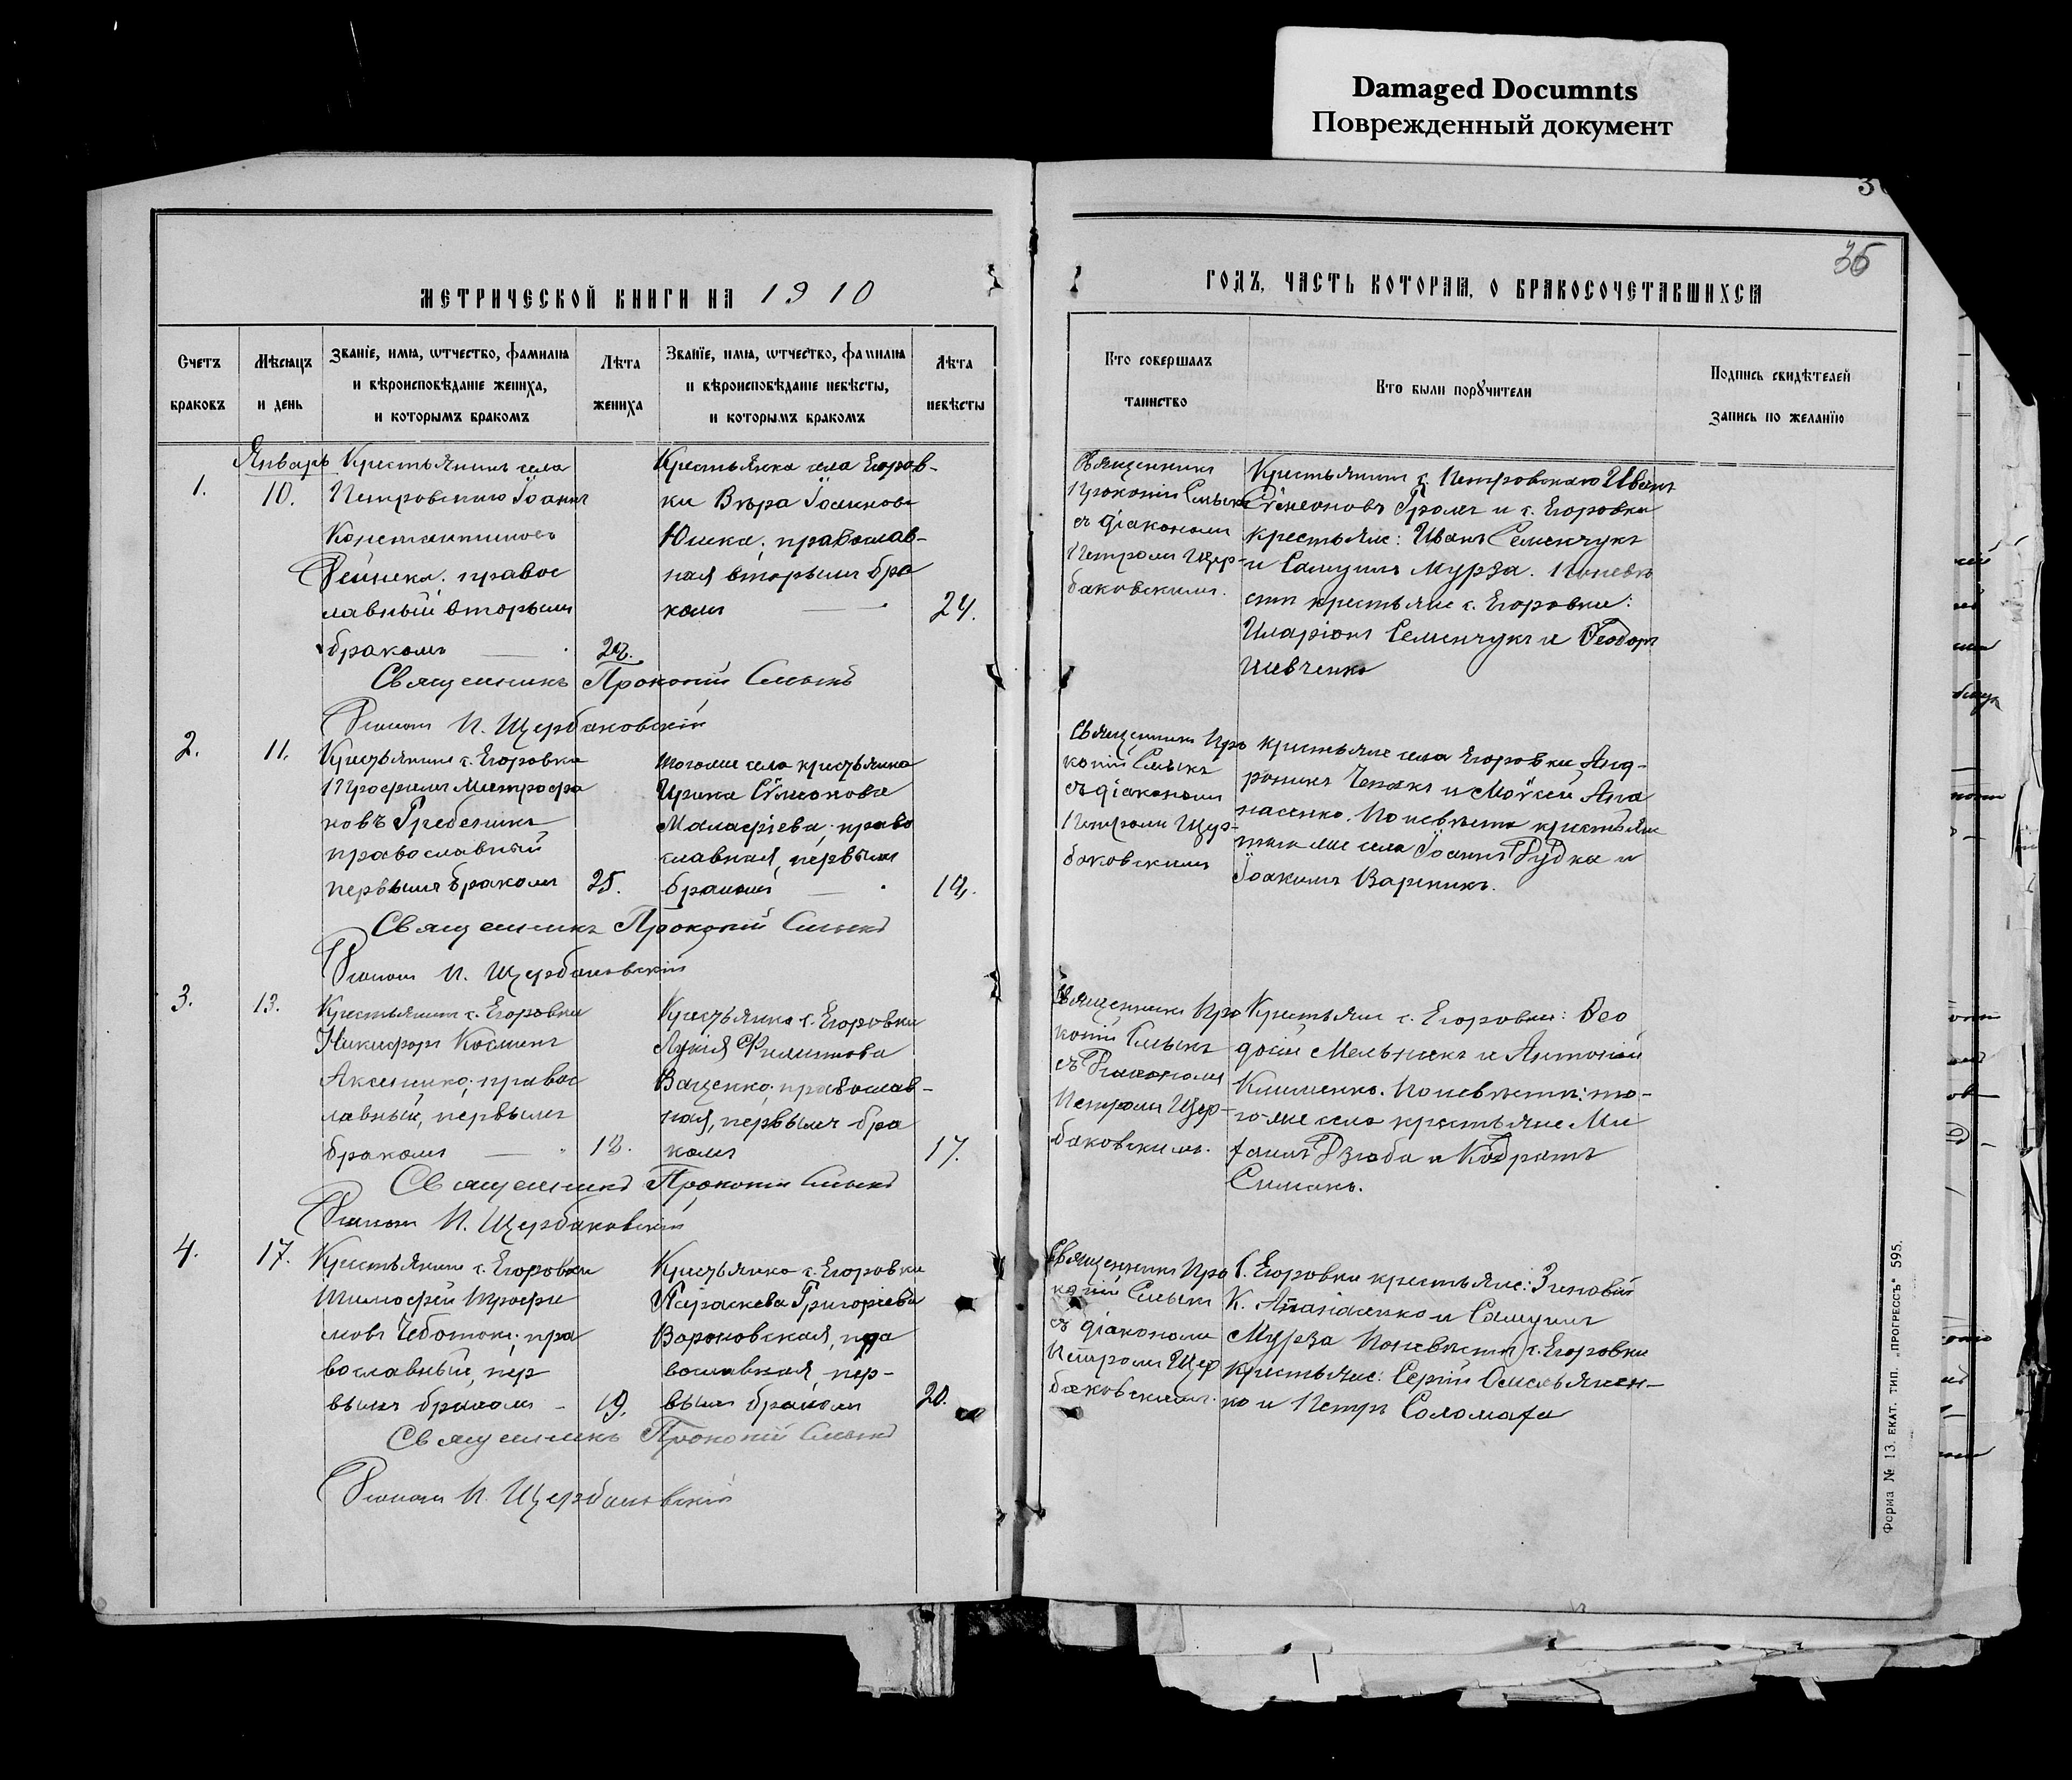 Damaged Documnts
Поврежденный документ
3
36
МЕТРИЧЕСКОЙ КНИГИ НА 1910
ГОДЪ, ЧАСТЬ КОТОРАЯ, О БРАКОСОЧЕТАВШИХСЯ
Счетъ браковъ
Мѣсяцъ и день
Званіе, имя, ѿтчество, фамилія
и вѣроисповѣданіе жениха,
и которымъ бракомъ
Лѣта жениха
Званїе, имя, ѿтчество, фамилія
и вѣроисповѣданіе невѣсты,
и которымъ бракомъ
Лѣта невѣсты
Кто совершалъ
таинство
Кто были порꙋчители
Подпись свидѣтелей
запись по желанію
Январь
1.
10.
Крестьянинъ села
Петровскаго Іоаннъ
Константиновъ
правос
лавный вторымъ
бракомъ
Крестьянка села Егоров-
ки Вѣра Іоаннова
Юшка, православ-
ная вторымъ бра
комъ
24.
Священникъ
Прокопій Смыкъ
съ діакономъ
Петромъ Щер-
баковскимъ.
Крестьянинъ с. Петровскаго Иванъ
Сѵмеоновъ Громъ и с. Егоровки
крестьяне: Иванъ Семенчукъ
и Самуилъ Мурза. По невѣ
стѣ крестьяне с. Егоровки:
Иларіонъ Семенчукъ и Ѳеодоръ
Шевченко
Священникъ Прокопій Смыкъ
Діаконъ П. Щербаковскій
2.
11.
Крестьянинъ с. Егоровки
Трофимъ Митрофа
новъ Гребеникъ
православный
первымъ бракомъ
25.
того же села крестьянка
Ирина Сѵмеонова
Малафіева, право
славная, первымъ
бракомъ
Священникъ Про
копій Смыкъ
съ діакономъ
Петромъ Щер-
баковскимъ
Крестьяне села Егоровки Анд-
роникъ Чепакъ и Моѵсей Апа
насенко. По невѣстѣ крестьяне
того же села Іоаннъ Дудка и
Іоакимъ Вареникъ.
Священникъ Прокопій Смыкъ
Діаконъ П. Щербаковскій
3.
13.
Крестьянинъ с. Егоровки
Никифоръ Косминъ
Аксененко, правос
лавный, первымъ
бракомъ
18.
Крестьянка с. Егоровки
Лукія Филиппова
Ващенко, православ-
ная, первымъ бра
комъ
17.
Священникъ Про
копій Смыкъ
съ Діакономъ
Петромъ Щер-
баковскимъ.
Крестьяне с. Егоровки: Ѳео
досій Мельникъ и Антоній
Клименко. По невѣстѣ: то-
го-же села крестьяне Ми
хаилъ Дзюба и Кодратъ
Симакъ.
Священникъ Прокопій Смыкъ
Діаконъ П. Щербаковскій
4.
17.
Крестьянинъ с. Егоровки
Тимофей Трофи
мовъ Чеботокъ, пра
вославный, пер
вымъ бракомъ -
19.
Крестьянка с. Егоровки
Параскева Григоріева
Вороновская, пра
вославная, пер-
вымъ бракомъ
20.
Священникъ Про
копій Смыкъ
съ діакономъ
Петромъ Щер
баковскимъ.
С. Егоровки крестьяне: Зиновій
К. Апанасенко и Самуилъ
Мурза По невѣстѣ с. Егоровки
крестьяне: Сергій Омельянен-
ко и Петръ Соломаха
Священникъ Прокопій Смыкъ
Діаконъ П. Щербаковскій
Форма № 13. ЕКАТ. ТИП. „ПРОГРЕССЪ" 595.